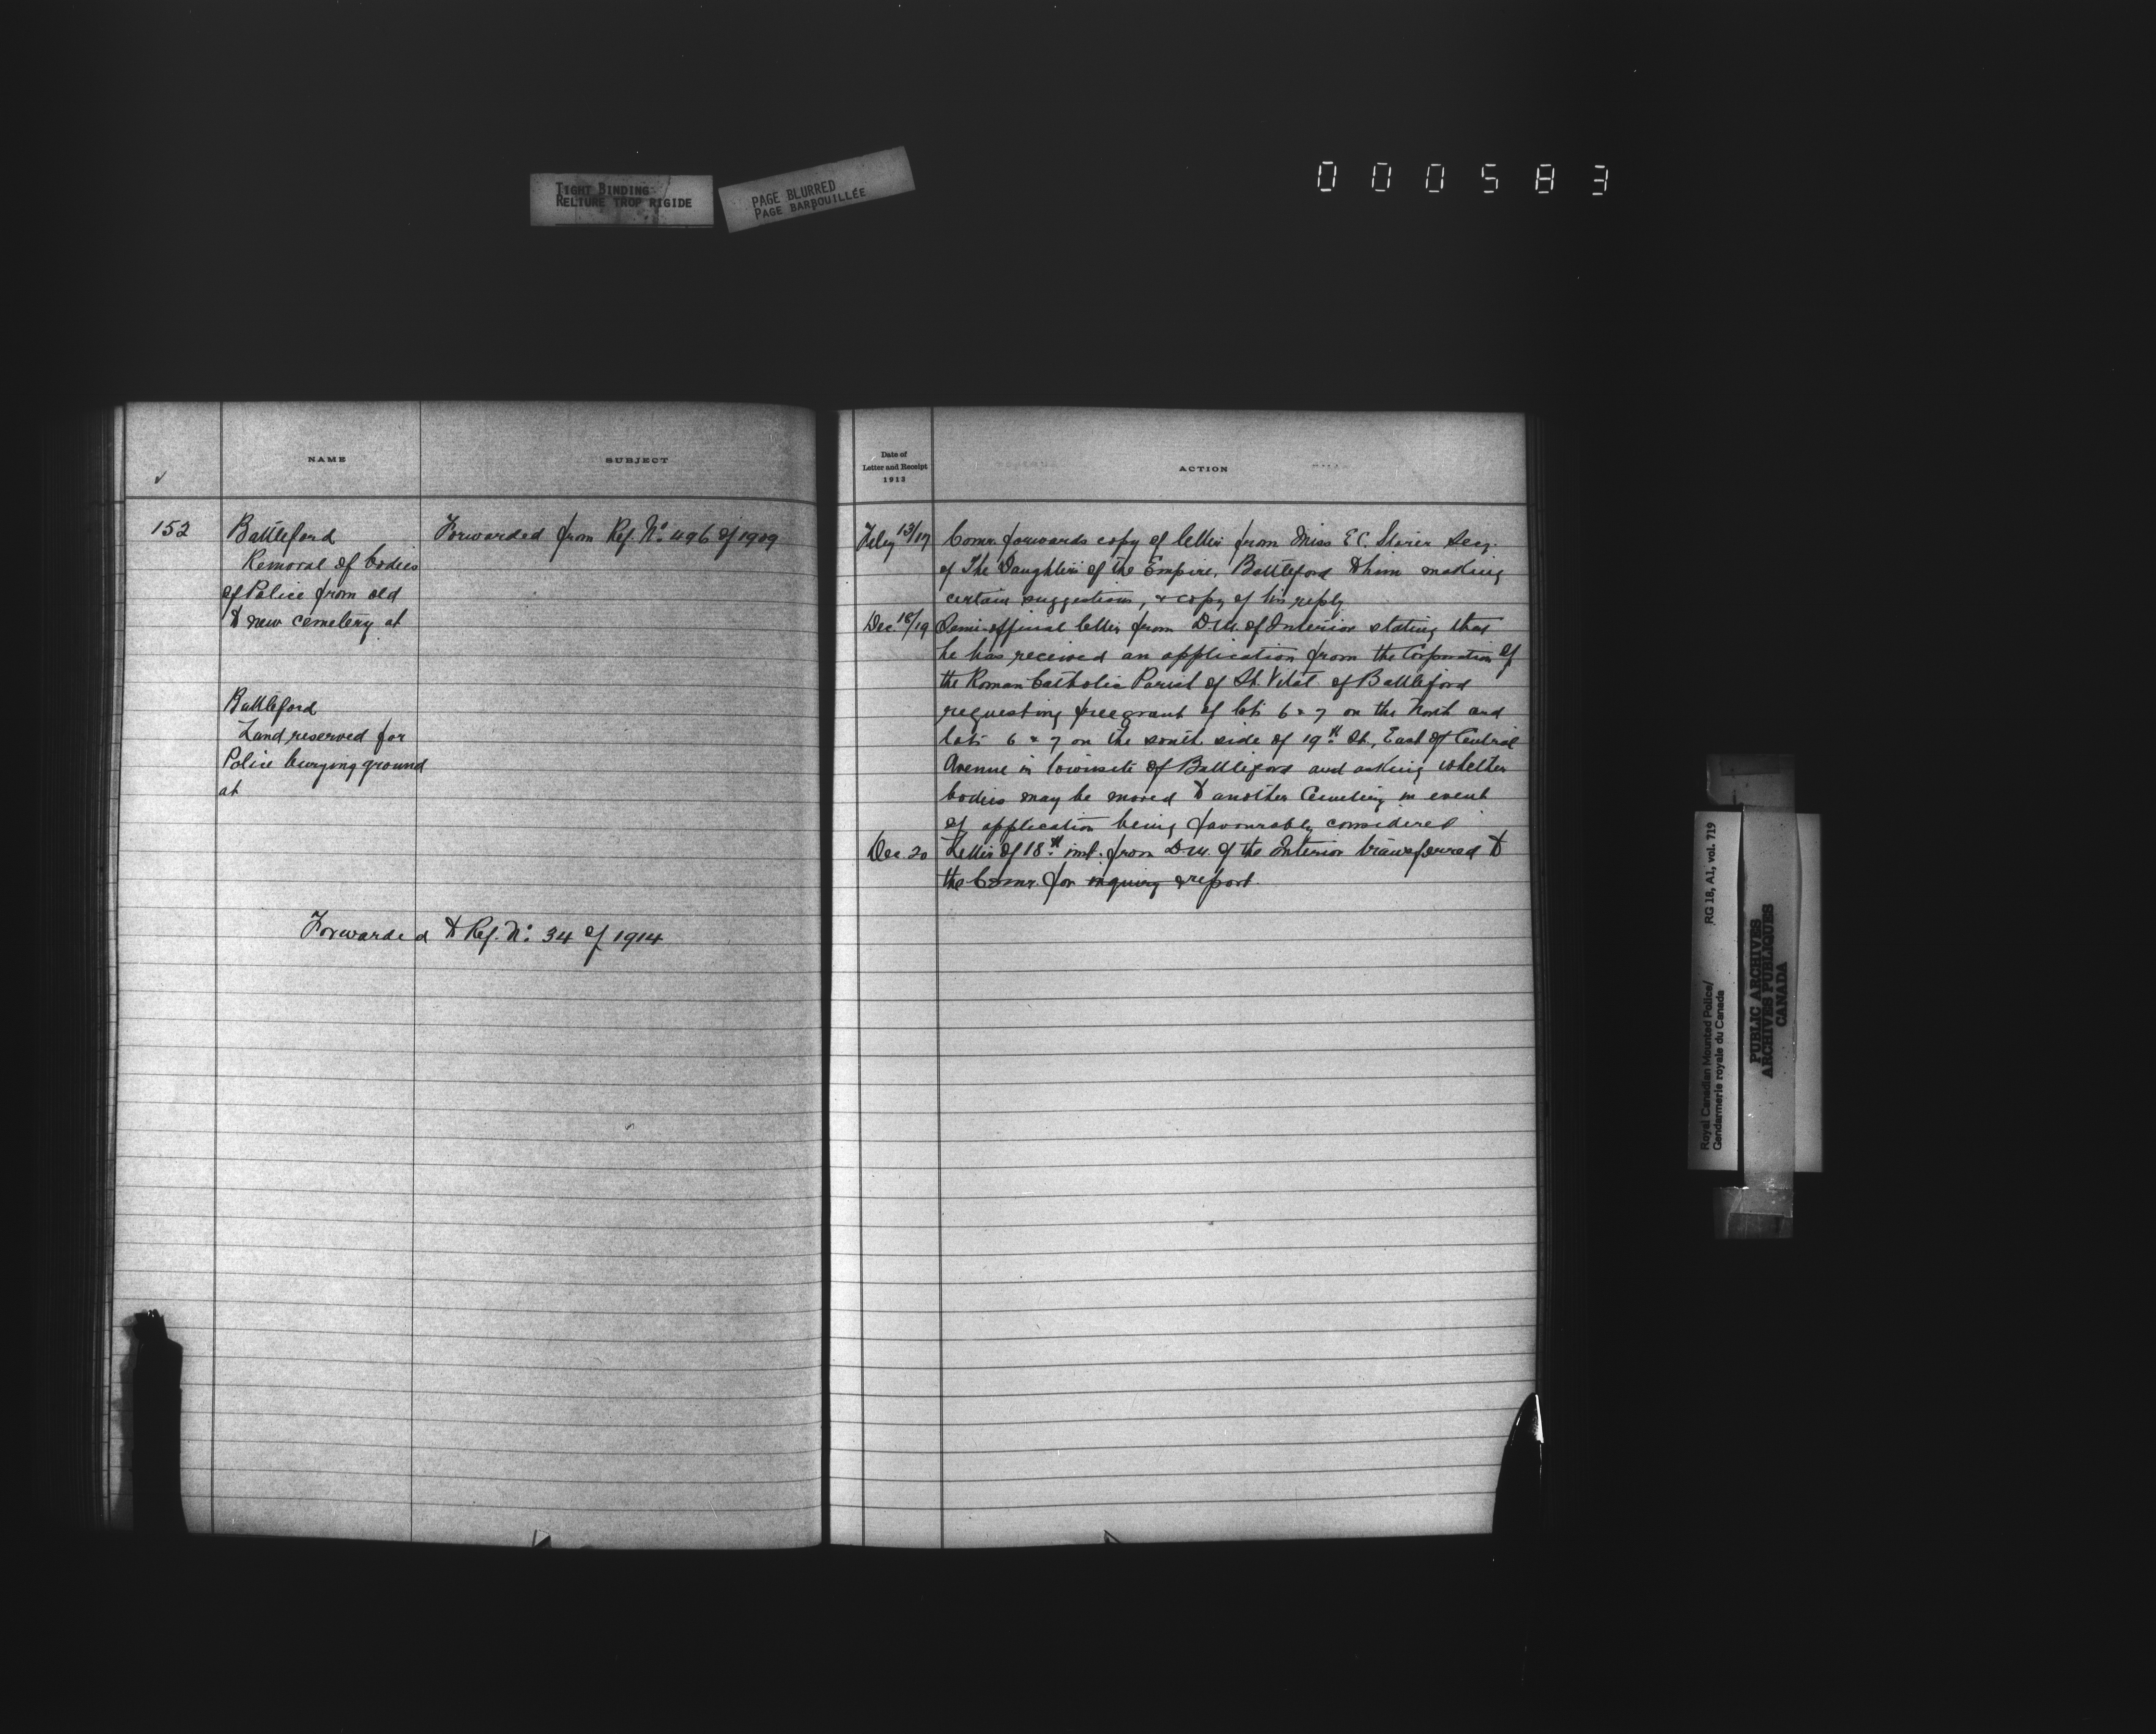 000583
TIGHT BINDING
RELIURE TROP RIGIDE
PAGE BLURRED
PAGE BARBOUILLÉE
NAME
SUBJECT
152
Battleford
Removal of bodies
of Police from old
to new cemetery at
Forwarded from Ref. No. 496 of 1909
Battleford
Land reserved for
Police burying ground
at
Forwarded to Ref. No. 34 of 1914
Date of
Letter and Receipt
1913
ACTION
Feby 13/17
Comr. forwards copy of letter from Miss E C. Secy.
of The Daughters of the Empire, Battleford to him making
certain suggestions, & copy of his reply
Dec. 18/19
Semi-official letter from D.M. of Interior stating that
he has received an application from the Corporation of
the Roman Catholic Parish of St. Vital of Battleford
requesting free grant of lots 6 & 7 on the North and
lots 6 & 7 on the south side of 19th St., East of Central
Avenue in townsite of Battleford and asking whether
bodies may be moved to another Cemetery in event
of application being favourably considered
Dec. 20
Letter of 18th inst. from D.M. of the Interior transferred to
the Comr. for inquiry & report.
Royal Canadian Mounted Police/
Gendarmerie royale du Canada
RG 18, A1, vol. 719
PUBLIC ARCHIVES
ARCHIVES PUBLIQUES
CANADA